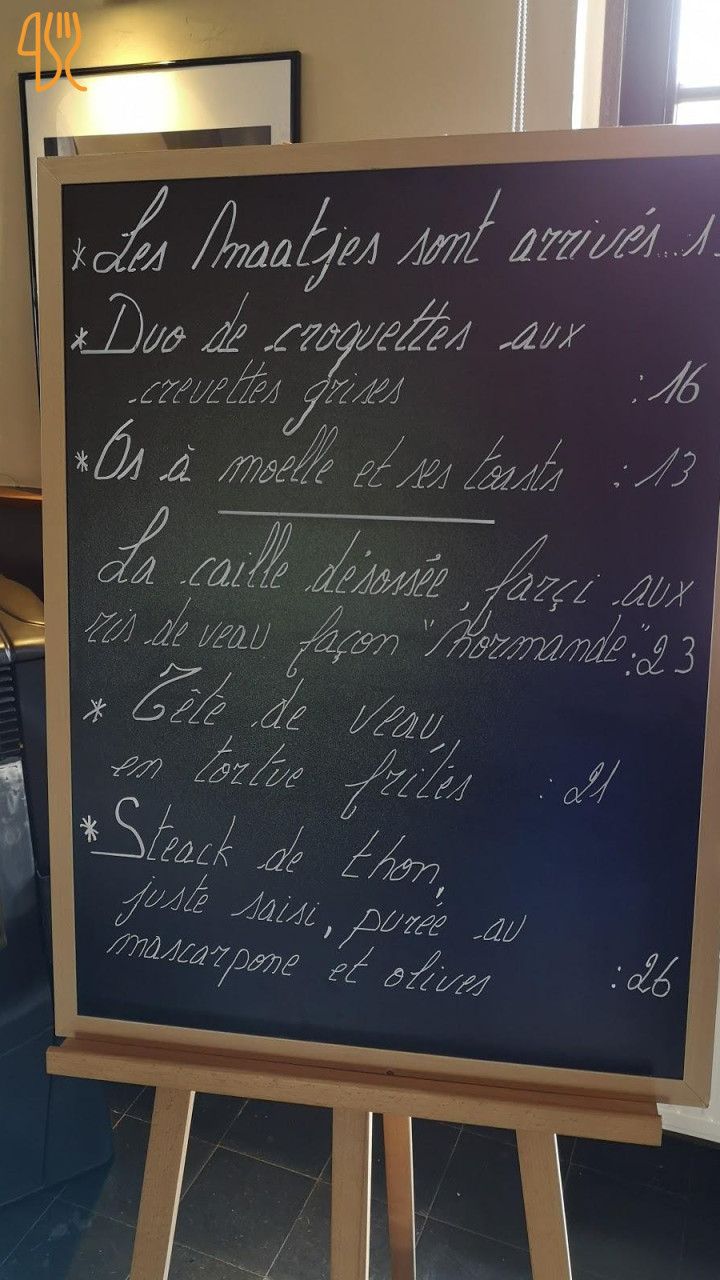 * Les Maatjes sont arrivés...
* Duo de croquettes aux
crevettes grises : 16
* Os à moelle et ses toasts : 13
La caille désossée, farçi aux
ris de veau façon "Normande" : 23
* Tête de veau,
en tortue frites : 21
* Steack de thon,
juste saisi, purée au
mascarpone et olives : 26